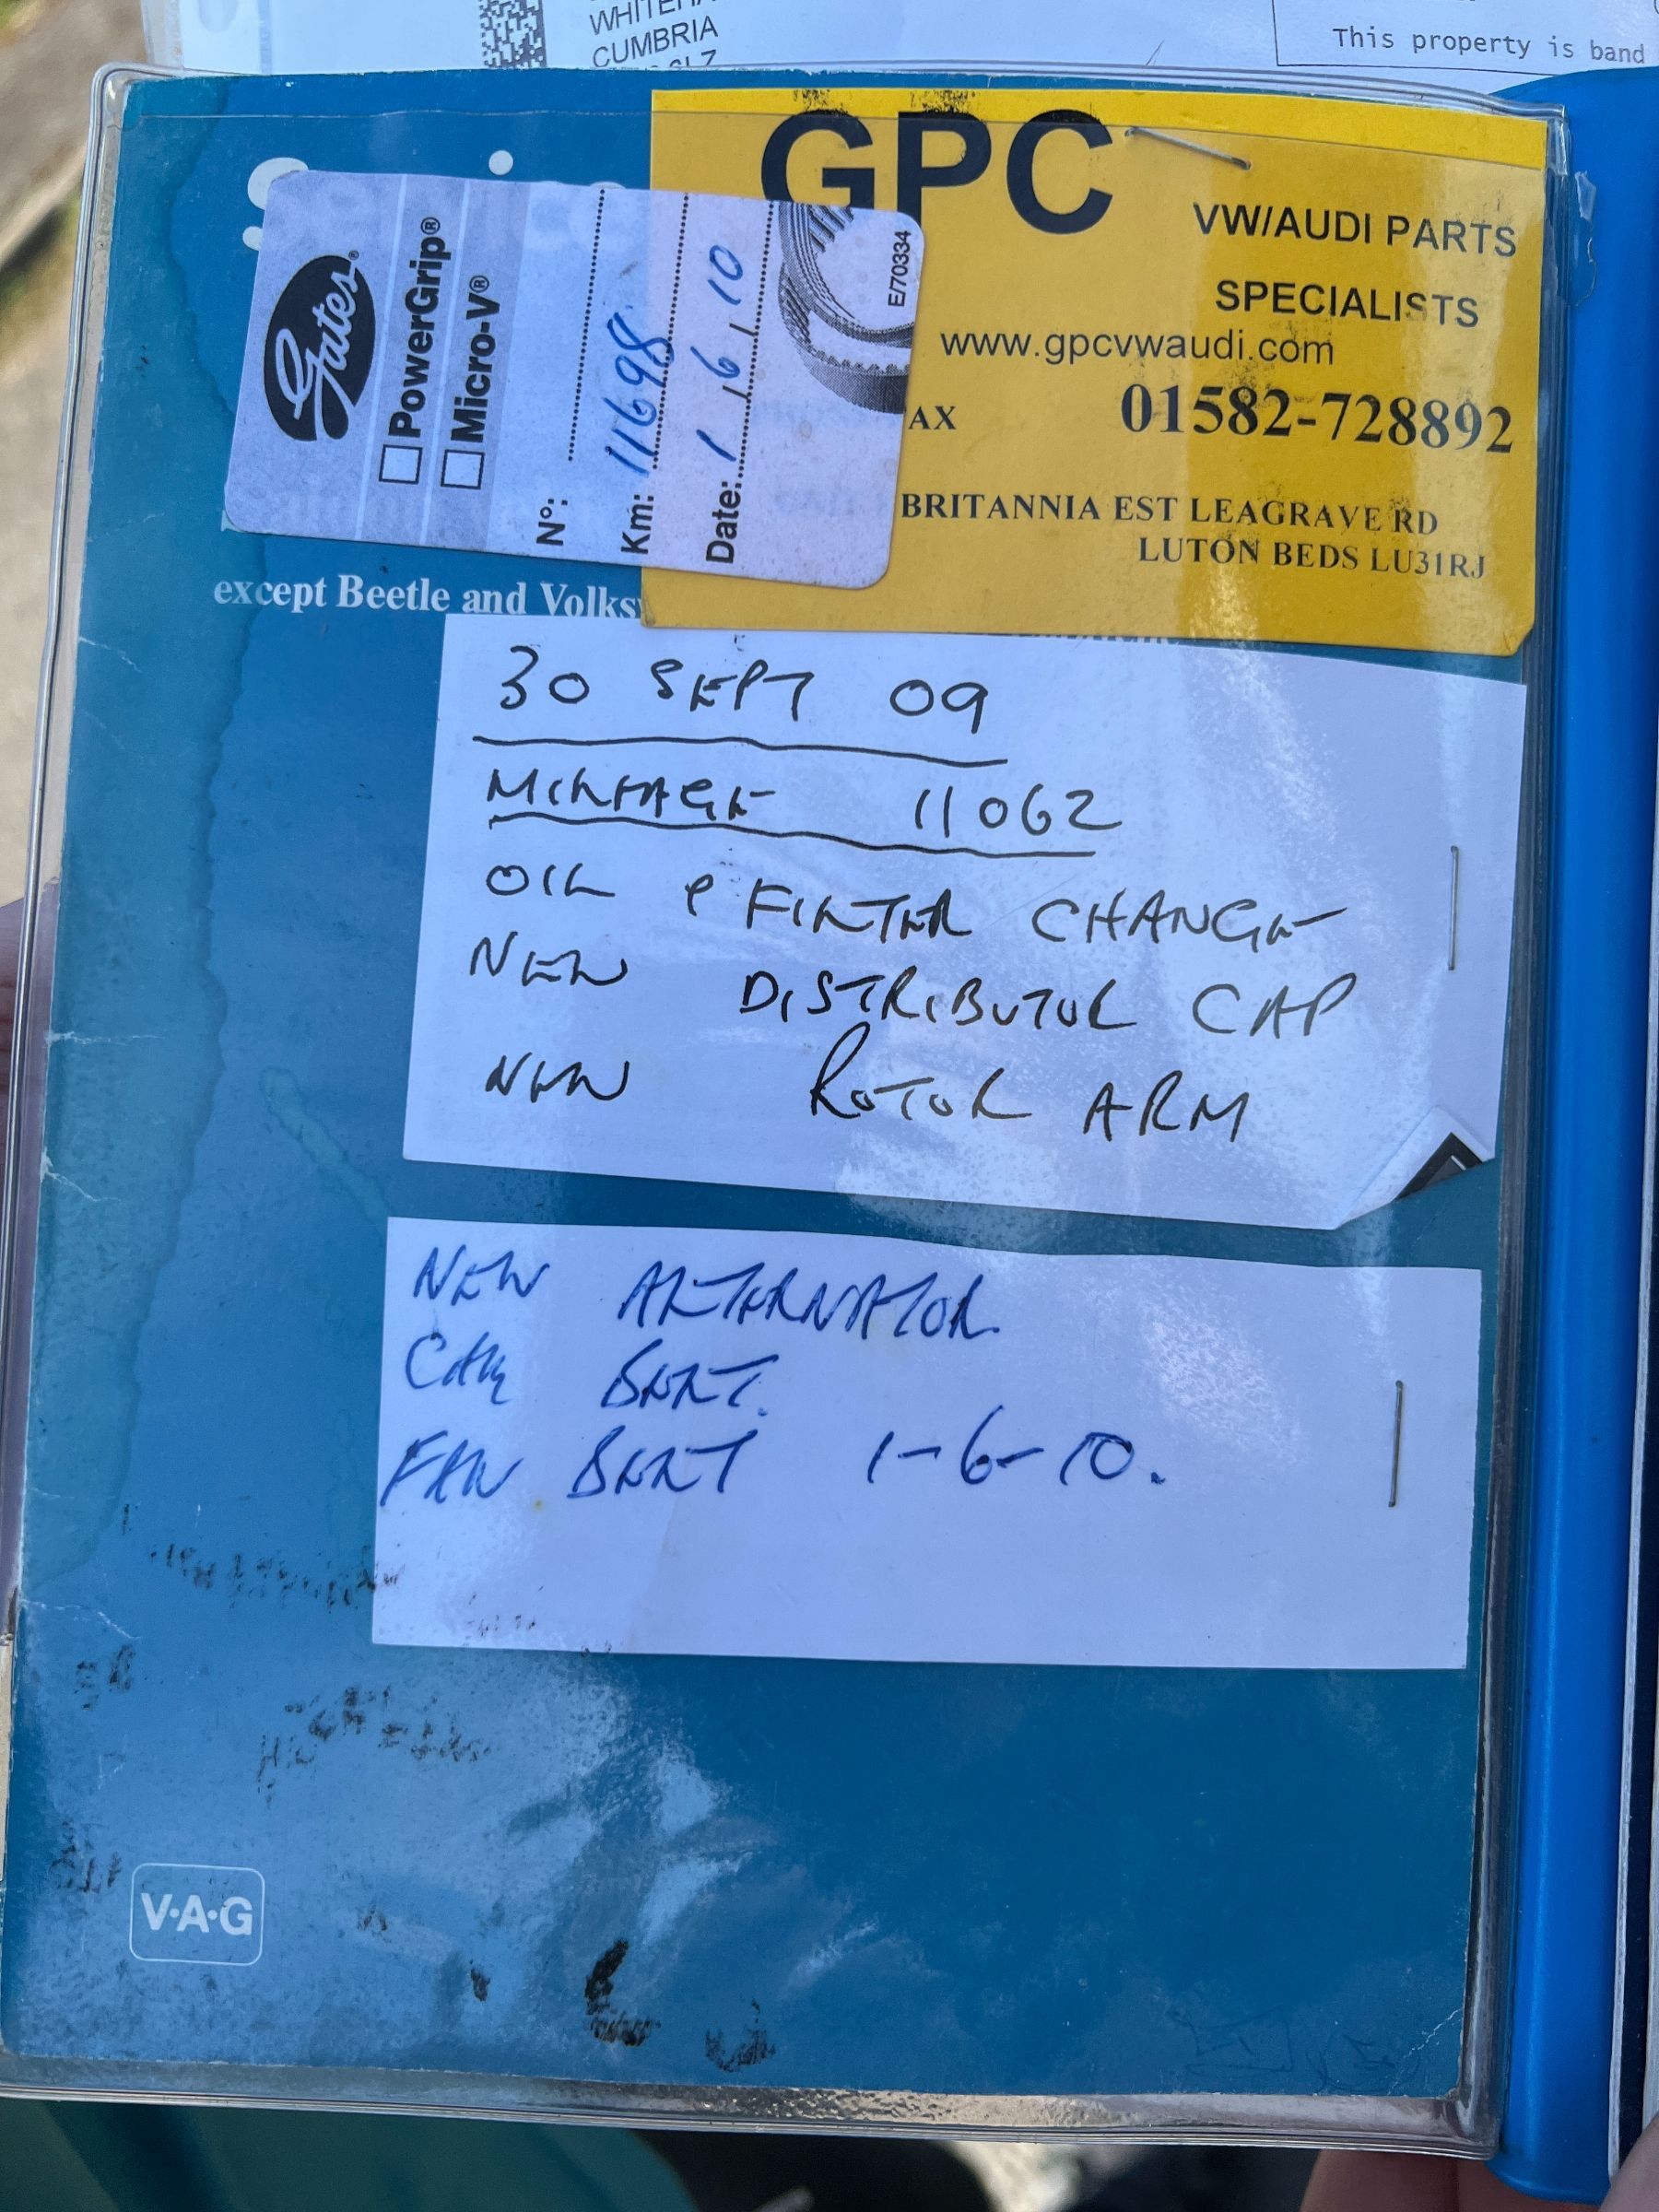 CUMBRIA
This property is band
GPC
VW/AUDI PARTS
SPECIALISTS
www.gpcvwaudi.com
AX 01582-728892
BRITANNIA EST LEAGRAVE RD
LUTON BEDS LU31RJ
Gates®
PowerGrip®
Micro-V®
N°:
Km: 11698
Date: 1 6 10
E/70334
except Beetle and Volks
30 SEPT 09
MILEAGE 11062
OIL & FILTER CHANGE
NEW DISTRIBUTOR CAP
NEW ROTOR ARM
NEW ALTERNATOR
CAM BELT.
FAN BELT 1-6-10.
V·A·G